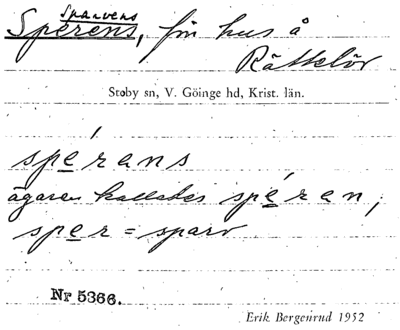 Sparvens
Sperens, fd hus å
Rättelöv
Stoby sn, V. Göinge hd, Krist. län.
spérens
ägaren kallades spéren,
sper = sparv
Nr 5366.
Erik Bergenrud 1952